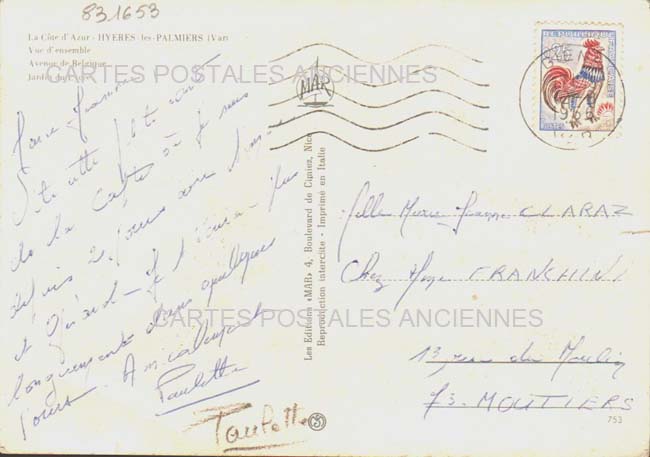 831653
La Côte d'Azur - HYERES-les-PALMIERS (Var)
Vue d'ensemble
Avenue de Belgique
CARTES POSTALES ANCIENNES
MAR
de la Carte où je suis
depuis 2 jours avec
et Gérard - Je t'écrirai plus
longuement dans quelques
jours. Amicalement
Paulette
Paulette
Les Editions «MAR» 4, Boulevard de Cimiez, Nice
Reproduction interdite - Imprimé en Italie
Melle Marie-Jeanne CLARAZ
Chez Mme FRANCHINI
CARTES POSTALES ANCIENNES
13, rue du Moulin
73-MOUTIERS
753